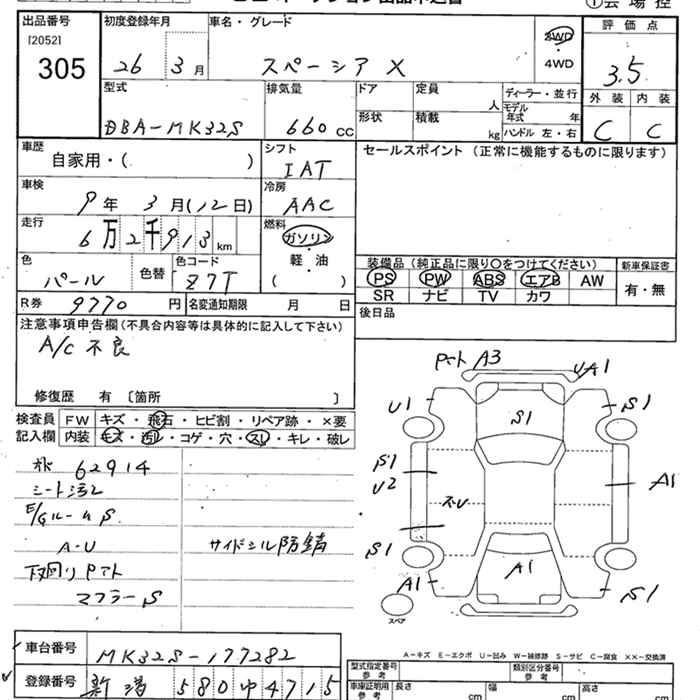 ①会場控
出品番号
[2052]
305
初度登録年月
26 3月
車名・グレード
スペーシア X
2WD
・
4WD
評価点
3.5
外装 内装
C C
型式
DBA-MK32S
排気量
660 CC
ドア
形状
定員
人
積載
kg
ディーラー・並行
モデル年式 年
ハンドル 左・右
車歴
自家用・( )
シフト
IAT
セールスポイント(正常に機能するものに限ります)
車検
9年 3月(12日)
冷房
AAC
走行
6万2千913km
燃料
ガソリン
・
軽・油
( )
色
パール
色替
色コード
Z7T
装備品(純正品に限り○をつけてください)
新車保証書
PS PW ABS エアB AW
SR ナビ TV カワ
有・無
R券 9770円
名変通知期限 月 日
後日品
注意事項申告欄(不具合内容等は具体的に記入して下さい)
A/C 不良
修復歴 有 〔箇所 〕
検査員
記入欄
FW キズ・飛石・ヒビ割・リペア跡・×要
内装 キズ・汚レ・コゲ・穴・スレ・キレ・破レ
62914
シート汚レ
E/Gルーム S
A・U
下回り Pマト
マフラーS
サイドシル防錆
A3
UA1
U1
S1
S1
S1
U2
A1
S1
A1
A1
S1
スペア
A-キズ E-エクボ U-凹み W-補修跡 S-サビ C-腐食 XX-交換済
車台番号
MK32S-177282
登録番号
新潟 580 ゆ 4715
型式指定番号
参考
類別区分番号
参考
車庫証明用
参考
長さ cm
幅 cm
高さ cm